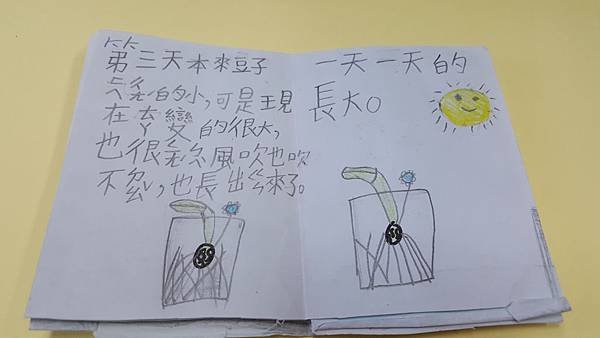 第三天本來豆子
的小,可是現
在變的很大,
也很風吹也吹
不,也長出來了。
一天一天的
長大。